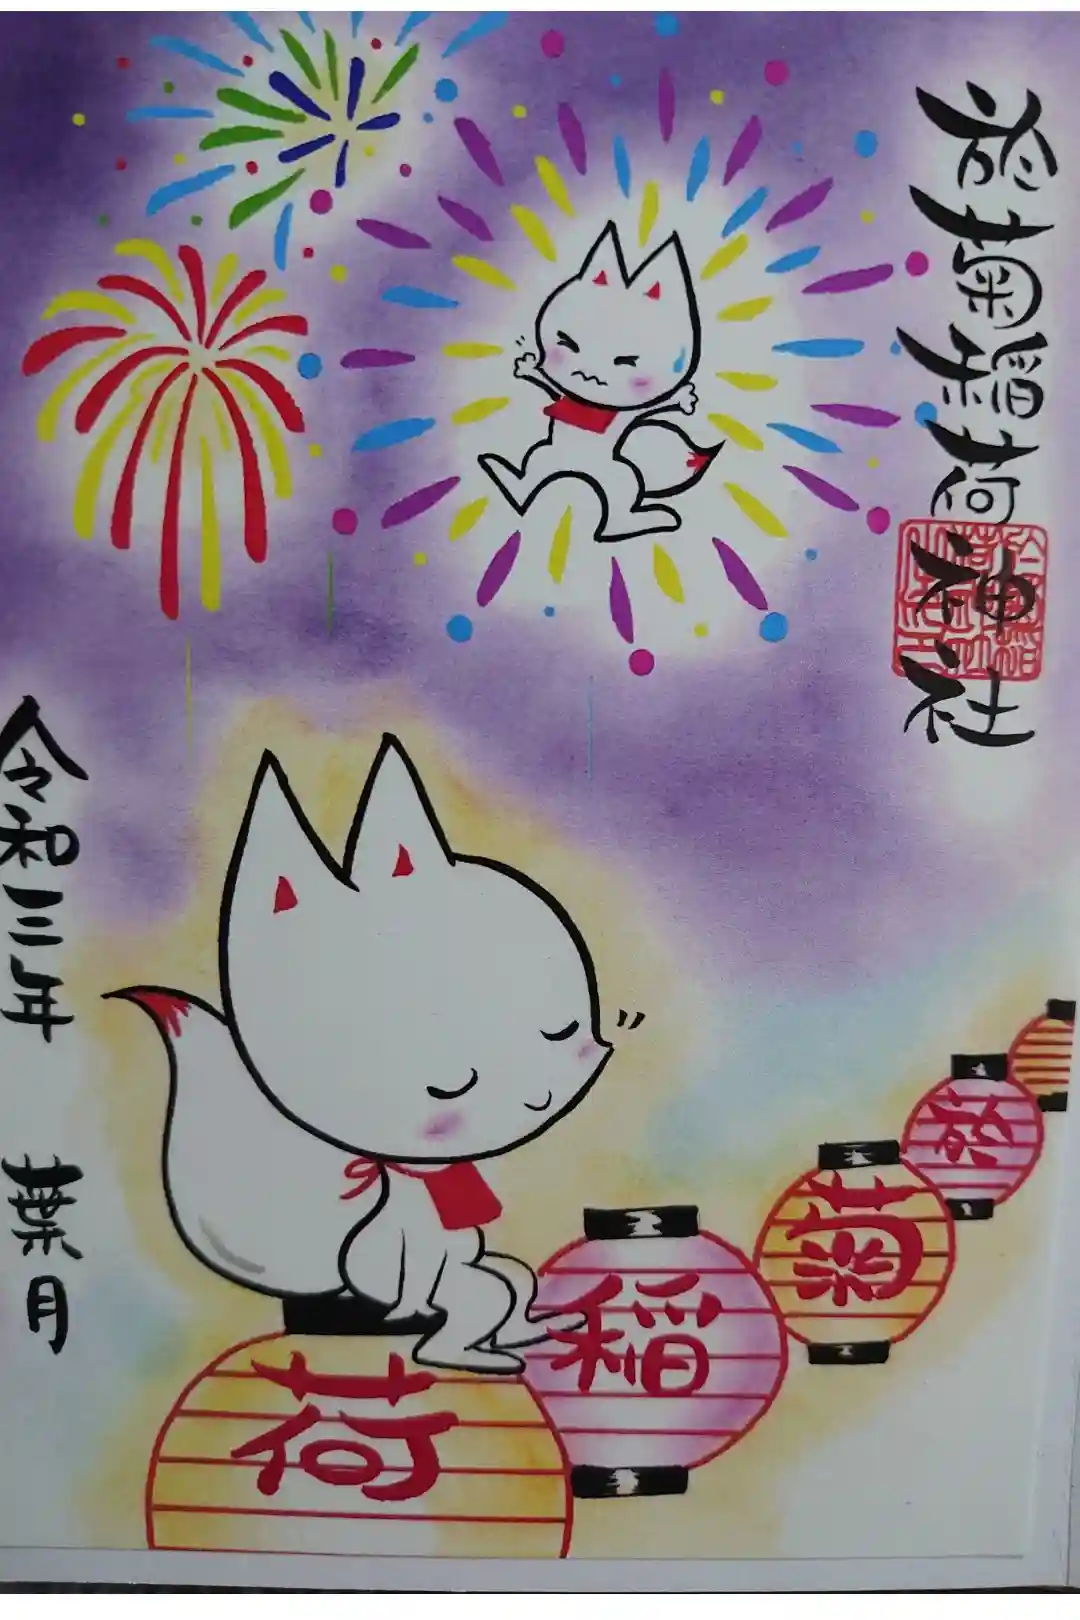 於菊稲荷神社
令和三年 葉月
於
菊
稲
荷